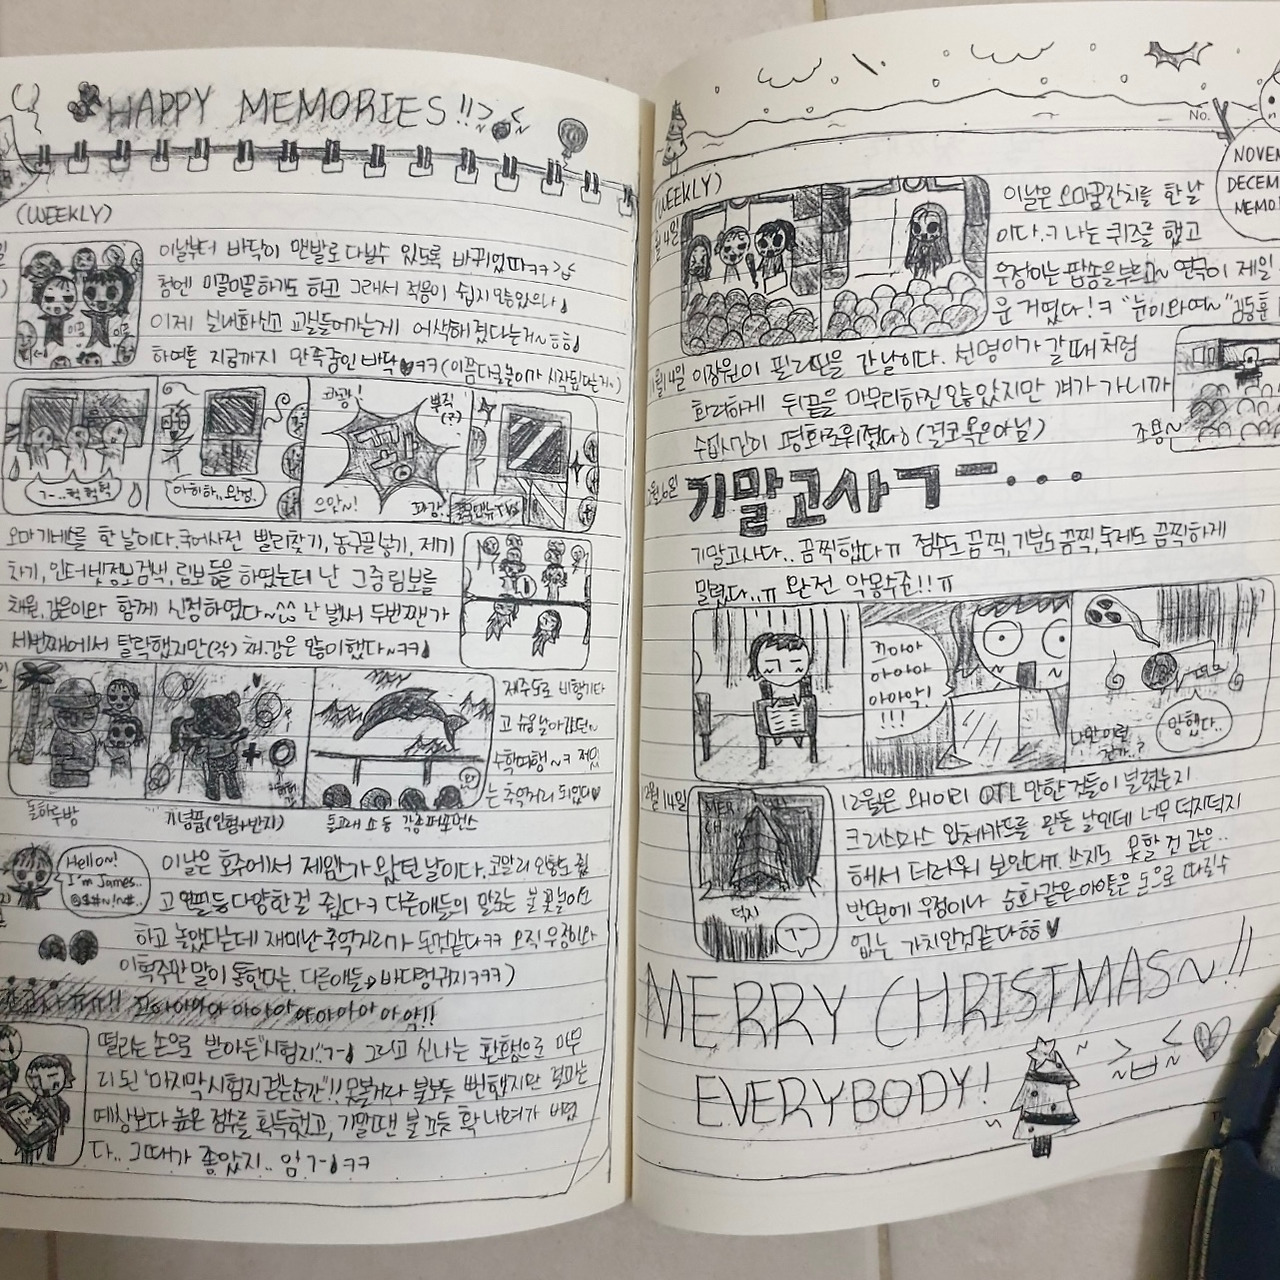 HAPPY MEMORIES!!
(WEEKLY)
이날부터 바닥이 맨발로 다닐수 있도록 바뀌었따ㅋㅋ
첨엔 미끌미끌하기도 하고 그래서 적응이 쉽지 않았으나
이제 실내화신고 교실들어가는게 어색해졌다는거~ㅎㅎ
하여튼 지금까지 만족중인 바닥♥ㅋㅋ(이쯤다굴놀이가 시작된다는거~)
ㄱ-..헉헉헉
아하하..완벙.
콰광!
쾅!
뿌직(?)
으악~!
오마기네를 한 날이다.국어사전 빨리찾기, 농구골넣기, 제기
차기, 인터넷정보검색, 림보등을 하였는데 난 그중 림보를
채원,갑은이와 함께 신청하였다~^^ 난 벌써 두번짼가
세번째에서 탈락했지만(각) 채강은 많이했다~ㅋㅋ
제주도로 비행기타
고 슝 날아갔던~
수학여행~ㅋ 재밌
는 추억거리 되었다♥
돌하루방
기념품(인형+반지)
돌고래 쇼 등 각종퍼포먼스
Hello~!
I'm James..
@$#~!~#..
이날은 호주에서 제임스가 왔던 날이다.코알라 인형도 줬
고 연필등 다양한걸 줬다ㅋ 다른애들의 말로는 불꽃놀이도
하고 놀았다는데 재미난 추억거리가 된것같다ㅋㅋ 오직 우정이와
이혁주만 말이 통한다는, 다른애들→바디랭귀지ㅋㅋㅋ)
ㅠㅠ!! 끄아아아아 아아아아 아아아아아악!!
떨리는 손으로 받아든"시험지".ㄱ-; 그리고 신나는 환호성으로 마무
리된 '마지막시험지 걷는순간"!! 못볼거라 불보듯 뻔했지만 결과는
예상보다 높은 점수를 획득했고, 기말땐 불 보듯 확 나려가 버렸
다.. 그때가 좋았지.. 암ㄱ-;ㅋㅋ
No.
NOVEM
DECEM
MEMO
(WEEKLY)
월4일
이날은 오마꿈잔치를 한 날
이다.ㅋ 나는 퀴즈를 했고
우정이는 팝송을부르고~ 연극이 제일
운 거였다!ㅋ "눈이와여~" 김동훈
월14일 이장원이 필리핀을 간날이다. 선명이가 갈때처럼
화려하게 뒤끝을 마무리하진 않았지만 걔가 가니까
수업시간이 평화로워졌다.(결코욕은아님)
조용~
월6일 기말고사ㄱㅡ...
기말고사다.. 끔찍했다ㅠ 점수도 끔찍,기분도 끔찍,숙제도 끔찍하게
밀렸다..ㅠ 완전 악몽수준!!ㅠ
끄아아
아아아
아아악!
!!!
나만이런건가..?
망했다..
12월14일
12월은 왜이리 OTL만한것들이 널렸는지
크리스마스 입체카드를 만든 날인데 너무 덕지덕지
해서 더러워 보인다ㅠ 쓰지도 못할것 같은..
반면에 우정이나 승화같은아이들은 돈으로 따질수
없는 가치인것같다ㅎㅎ♥
덕지
ㄱ-
MERRY CHRISTMAS~!!
EVERYBODY!